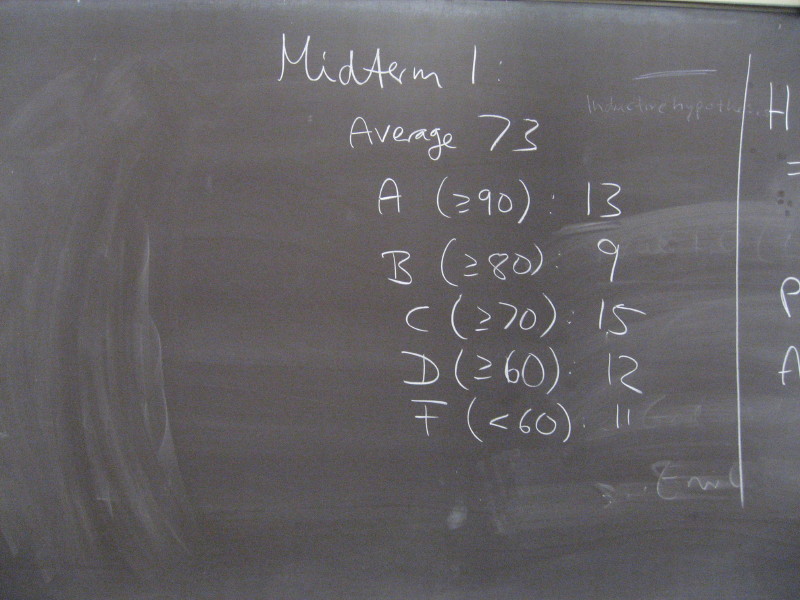 Midterm 1:
Average 73
A (≥90): 13
B (≥80): 9
C (≥70): 15
D (≥60): 12
F (<60): 11
Inductive hypothesis
H
=
P
A